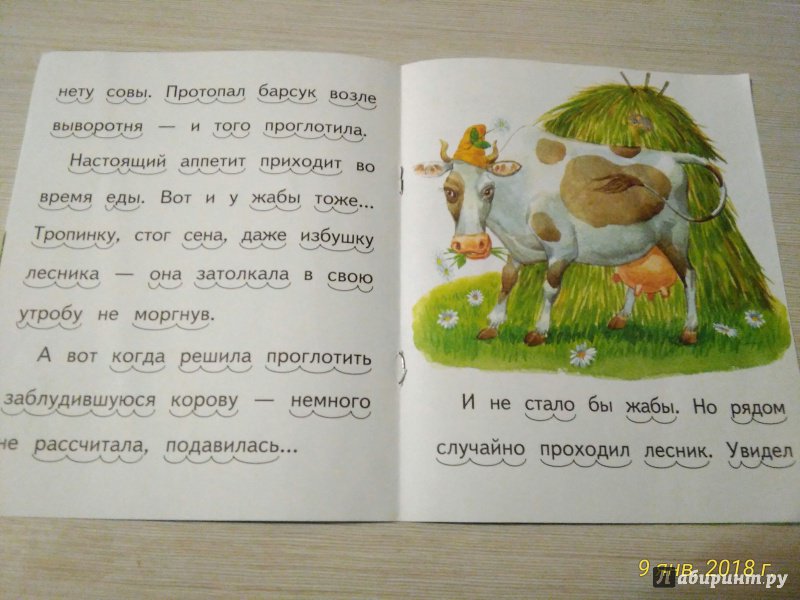 нету совы. Протопал барсук возле
выворотня — и того проглотила.
Настоящий аппетит приходит во
время еды. Вот и у жабы тоже...
Тропинку, стог сена, даже избушку
лесника — она затолкала в свою
утробу не моргнув.
А вот когда решила проглотить
заблудившуюся корову — немного
не рассчитала, подавилась...
И не стало бы жабы. Но рядом
случайно проходил лесник. Увидел
9 янв. 2018 г.
Лабиринт.ру